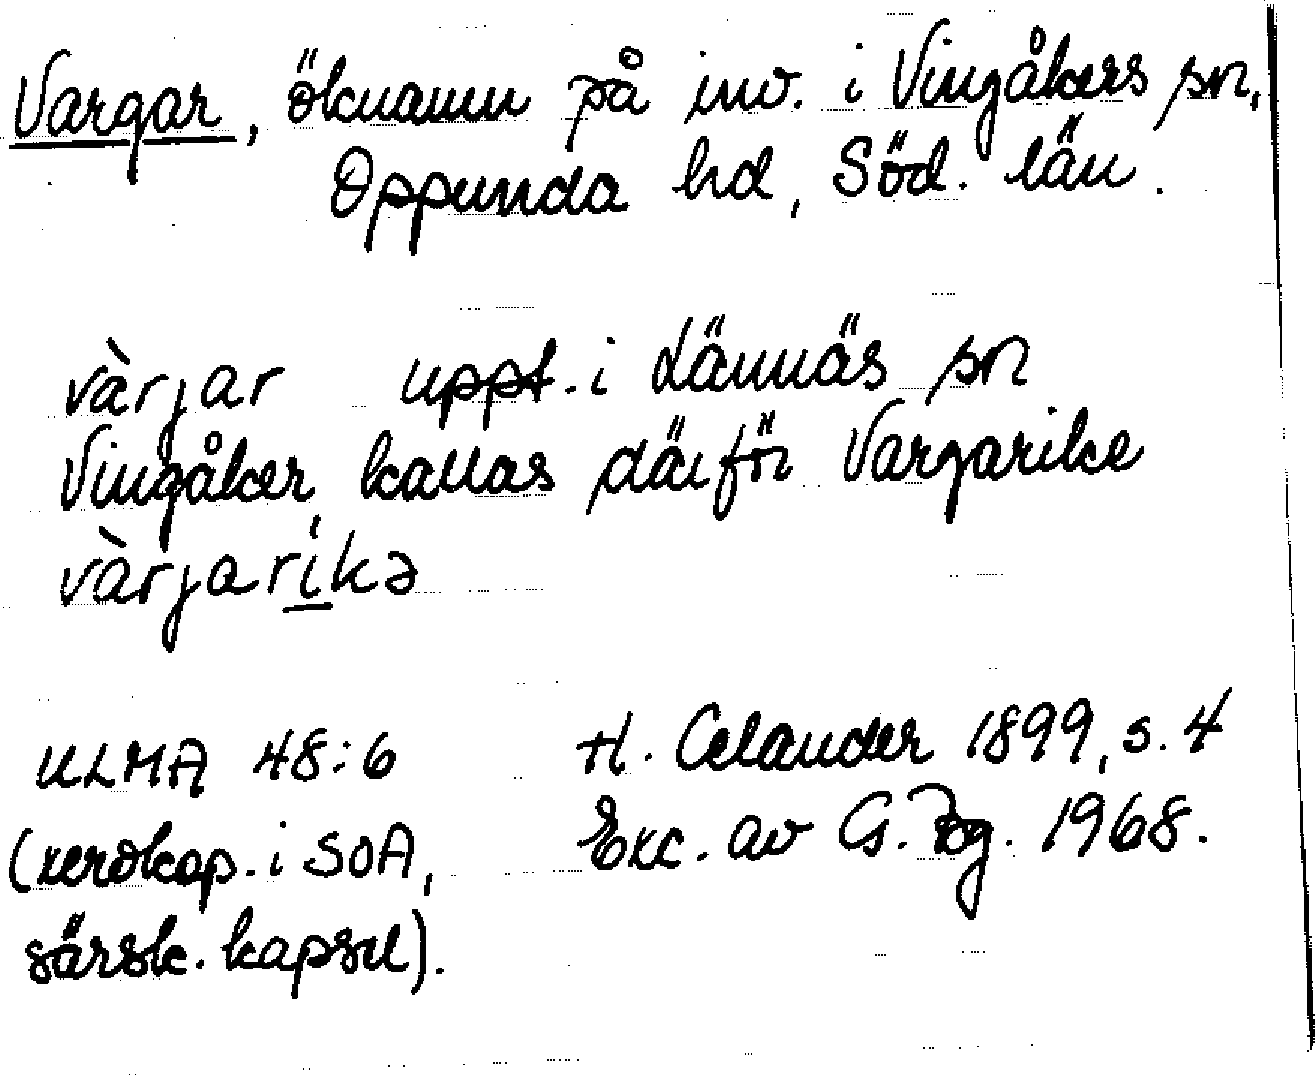 Vargar, öknamn på inv. i Vingåkers sn,
Oppunda hd, Söd. län.
vàrjar uppt. i Lännäs sn
Vingåker, kallas därför Vargarike
vàrjarikə
ULMA 48:6 H. Celander 1899, s. 4
(xerokop. i SOA, Exc. av G. Bg. 1968.
särsk. kapsel).